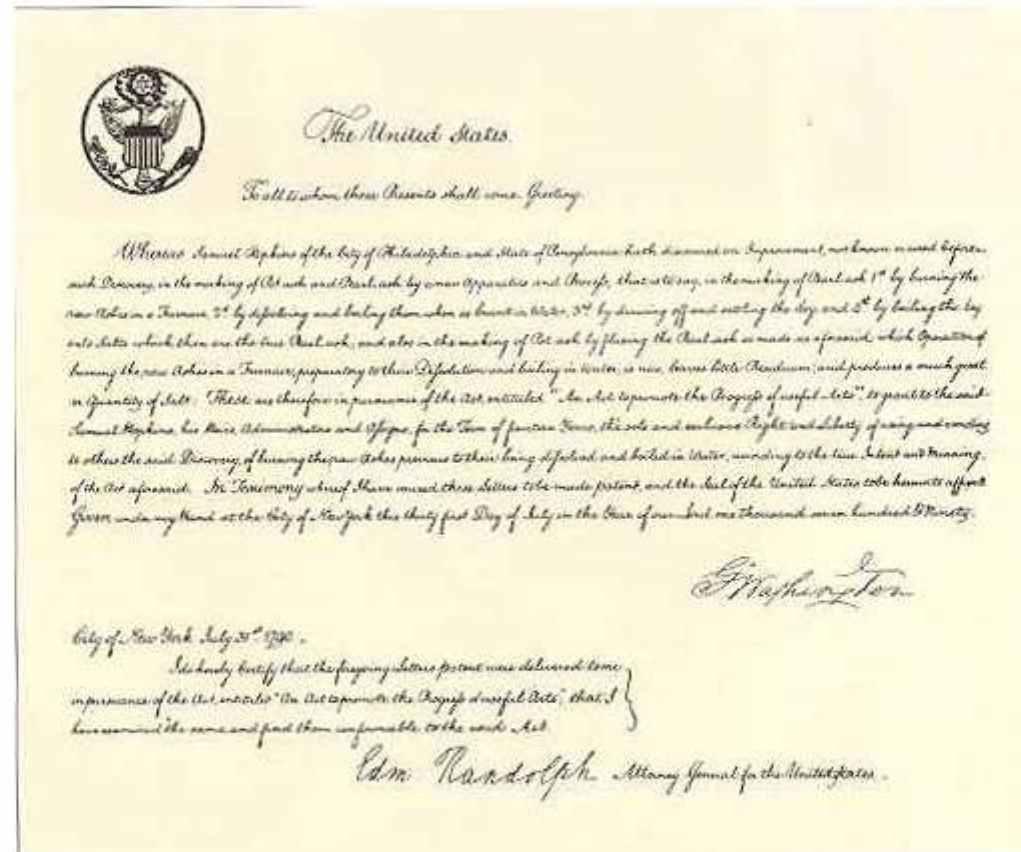 The United States.
To all to whom these Presents shall come Greeting.
Whereas Samuel Hopkins of the City of Philadelphia and State of Pensylvania hath discovered an Improvement, not known or used before
such Discovery, in the making of Pot ash and Pearl ash by a new Apparatus and Process, that is to say, in the making of Pearl ash 1st by burning the
raw Ashes in a Furnace, 2d by dissolving and boiling them when so burnt in Water, 3rd by drawing off and settling the Ley and 4th by boiling the Ley
into Salts which then are the true Pearl ash; and also in the making of Pot ash by fluxing the Pearl ash so made as aforesaid; which Operation of
burning the raw Ashes in a Furnace, preparatory to their Dissolution and boiling in Water, is new, leaves little Residuum; and produces a much great
er Quantity of Salt: These are therefore in pursuance of the Act, entituled "An Act to promote the Progress of useful Arts", to grant to the said
Samuel Hopkins, his Heirs, Administrators and Assigns, for the Term of fourteen Years, the sole and exclusive Right and Liberty of using and vending
to others the said Discovery, of burning the raw Ashes previous to their being dissolved and boiled in Water, according to the true Intent and Meaning
of the Act aforesaid. In Testimony whereof I have caused these Letters to be made patent, and the Seal of the United States to be hereunto affixed
Given under my Hand at the City of New York this thirty first Day of July in the Year of our Lord one thousand seven hundred & Ninety.
G Washington
City of New York July 31st 1790.
I do hereby Certify that the foregoing Letters patent were delivered to me
in pursuance of the Act, entituled "An Act to promote the Progress of useful Arts", that I
have examined the same and find them conformable to the said Act.
Edm Randolph Attorney General for the United States.